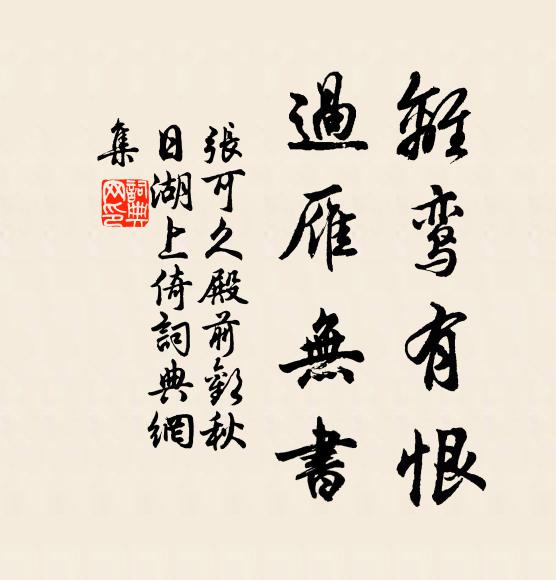 離鸾有恨
過雁無書
張可久殿前歡秋
日湖上倚詞典網
集
詞典
网印